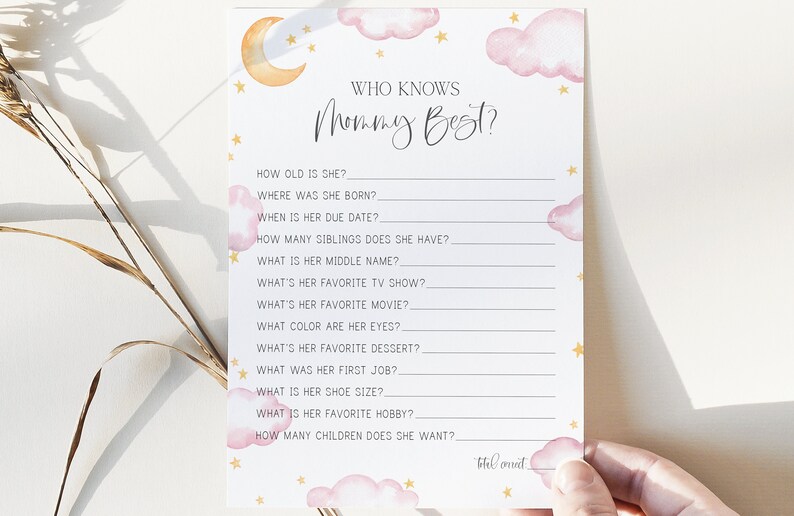 WHO KNOWS
Mommy Best?
HOW OLD IS SHE?
WHERE WAS SHE BORN?
WHEN IS HER DUE DATE?
HOW MANY SIBLINGS DOES SHE HAVE?
WHAT IS HER MIDDLE NAME?
WHAT'S HER FAVORITE TV SHOW?
WHAT'S HER FAVORITE MOVIE?
WHAT COLOR ARE HER EYES?
WHAT'S HER FAVORITE DESSERT?
WHAT WAS HER FIRST JOB?
WHAT IS HER SHOE SIZE?
WHAT IS HER FAVORITE HOBBY?
HOW MANY CHILDREN DOES SHE WANT?
total correct